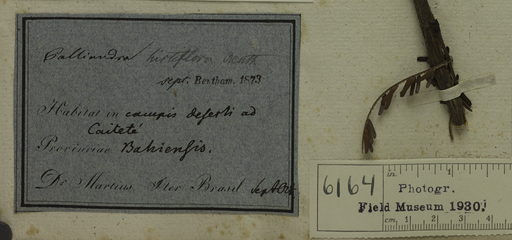 Calliandra hirtiflora Benth
sept. Bentham. 1873
Habitat in campis deserti ad
Caiteté
Provinciae Bahiensis.
Dr Martius Iter Brasil Sept Oct
6164
in. 1
Photogr.
Field Museum 1930
cm. 1 2 3 4